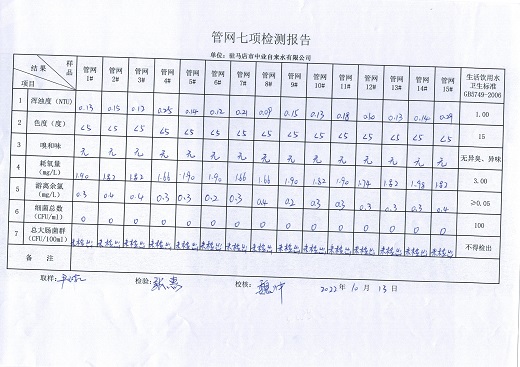 管网七项检测报告
单位：驻马店市中业自来水有限公司
结果 样品 项目 管网1# 管网2# 管网3# 管网4# 管网5# 管网6# 管网7# 管网8# 管网9# 管网10# 管网11# 管网12# 管网13# 管网14# 管网15# 生活饮用水卫生标准GB5749-2006
1 浑浊度（NTU） 0.13 0.15 0.12 0.25 0.14 0.12 0.21 0.09 0.15 0.13 0.18 0.13 0.14 0.29 1.00
2 色度（度） <5 <5 <5 <5 <5 <5 <5 <5 <5 <5 <5 <5 <5 <5 <5 15
3 嗅和味 无 无 无 无 无 无 无 无 无 无 无 无 无 无 无 无异臭、异味
4 耗氧量（mg/L） 1.90 1.82 1.82 1.66 1.90 1.90 1.66 1.66 1.90 1.82 1.90 1.74 1.82 1.98 1.82 3.00
5 游离余氯（mg/L） 0.3 0.4 0.4 0.3 0.3 0.2 0.3 0.4 0.2 0.3 0.3 0.3 0.3 0.3 0.4 ≥0.05
6 细菌总数（CFU/ml） 0 0 0 0 0 0 0 0 0 0 0 0 0 0 0 100
7 总大肠菌群（CFU/100ml） 未检出 未检出 未检出 未检出 未检出 未检出 未检出 未检出 未检出 未检出 未检出 未检出 未检出 未检出 未检出 不得检出
备 注
取样： 检验： 检核： 2022年10月13日